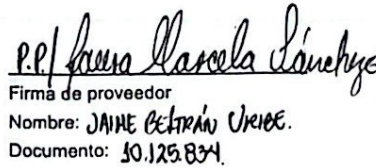 P.P./ Laura Marcela Sánchez
Firma de proveedor
Nombre: JAIME BELTRÁN URIBE.
Documento: 10.125.834.